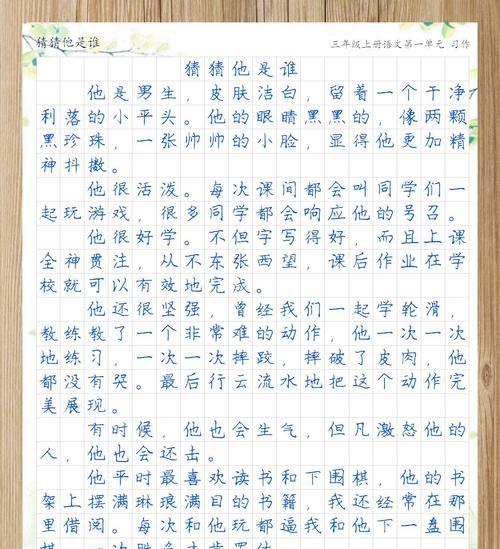 猜猜他是谁
三年级上册语文第一单元 习作
猜猜他是谁
他是男生，皮肤洁白，留着一个干净
利落的小平头。他的眼睛黑黑的，像两颗
黑珍珠，一张帅帅的小脸，显得他更加精
神抖擞。
他很活泼。每次课间都会叫同学们一
起玩游戏，很多同学都会响应他的号召。
他很好学。不但字写得好，而且上课
全神贯注，从不东张西望，课后作业在学
校就可以有效地完成。
他还很坚强，曾经我们一起学轮滑，
教练教了一个非常难的动作，他一次一次
地练习，一次一次摔跤，摔破了皮肉，他
都没有哭。最后行云流水地把这个动作完
美展现。
有时候，他也会生气，但凡激怒他的
人，他也会还击。
他平时最喜欢读书和下围棋，他的书
架上摆满琳琅满目的书籍，我还经常在那
里借阅。每次和他玩都逼我和他下一盘围